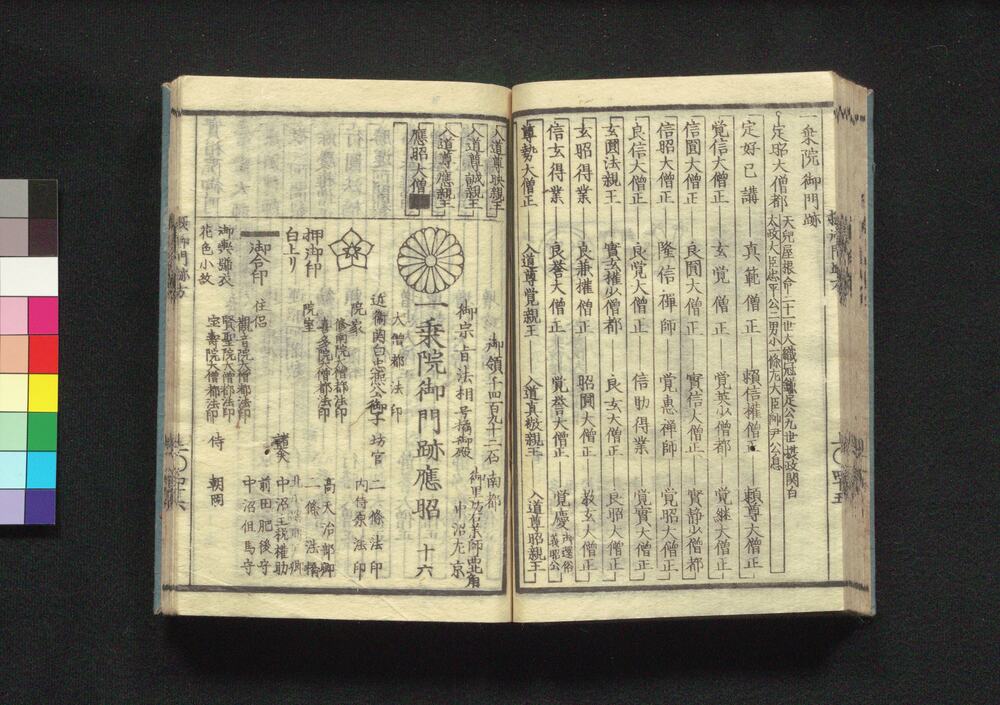 一乗院御門跡
定昭大僧都
天兒屋根命二十一世大織冠鎌足公九世摂政関白
太政大臣忠平公二男小一條左大臣師尹公息
定好已講 真範僧正 頼信権僧正 頼尊大僧正
覚信大僧正 玄覚僧正 覚継大僧正
信圓大僧正 良圓大僧正 實信大僧正 實静少僧都
信昭大僧正 隆信禅師 覚恵禅師 覚昭大僧正
良信大僧正 良覚大僧正 信助得業 覚實大僧正
玄圓法親王 實玄権少僧都 良玄大僧正 良昭大僧正
玄昭得業 良兼権僧正 昭圓大僧正 教玄大僧正
信玄得業 良誉大僧正 覚誉大僧正 覚慶 御還俗 義昭公
尊勢大僧正 入道尊覚親王 入道真敬親王 入道尊昭親王
入道尊映親王
入道尊誠親王
入道尊應親王
應昭大僧
御領千四百九十二石 南都
御宗旨法相号橘御殿
中沼左京
一乗院御門跡應昭 十六
大僧都法印
近衛関白忠熈公御子 坊官 二條法印
内侍原法印
院家
修南院大僧都法印
喜多院大僧都法印
押御印
白上り
院室
御合印
住侶
観音院大僧都法印
賢聖院大僧都法印
宝壽院大僧都法印
諸大夫
高天治部卿
二條法橋
中沼主税権助
前田肥後守
中沼但馬守
侍
朝岡
御輿舁衣
花色小紋